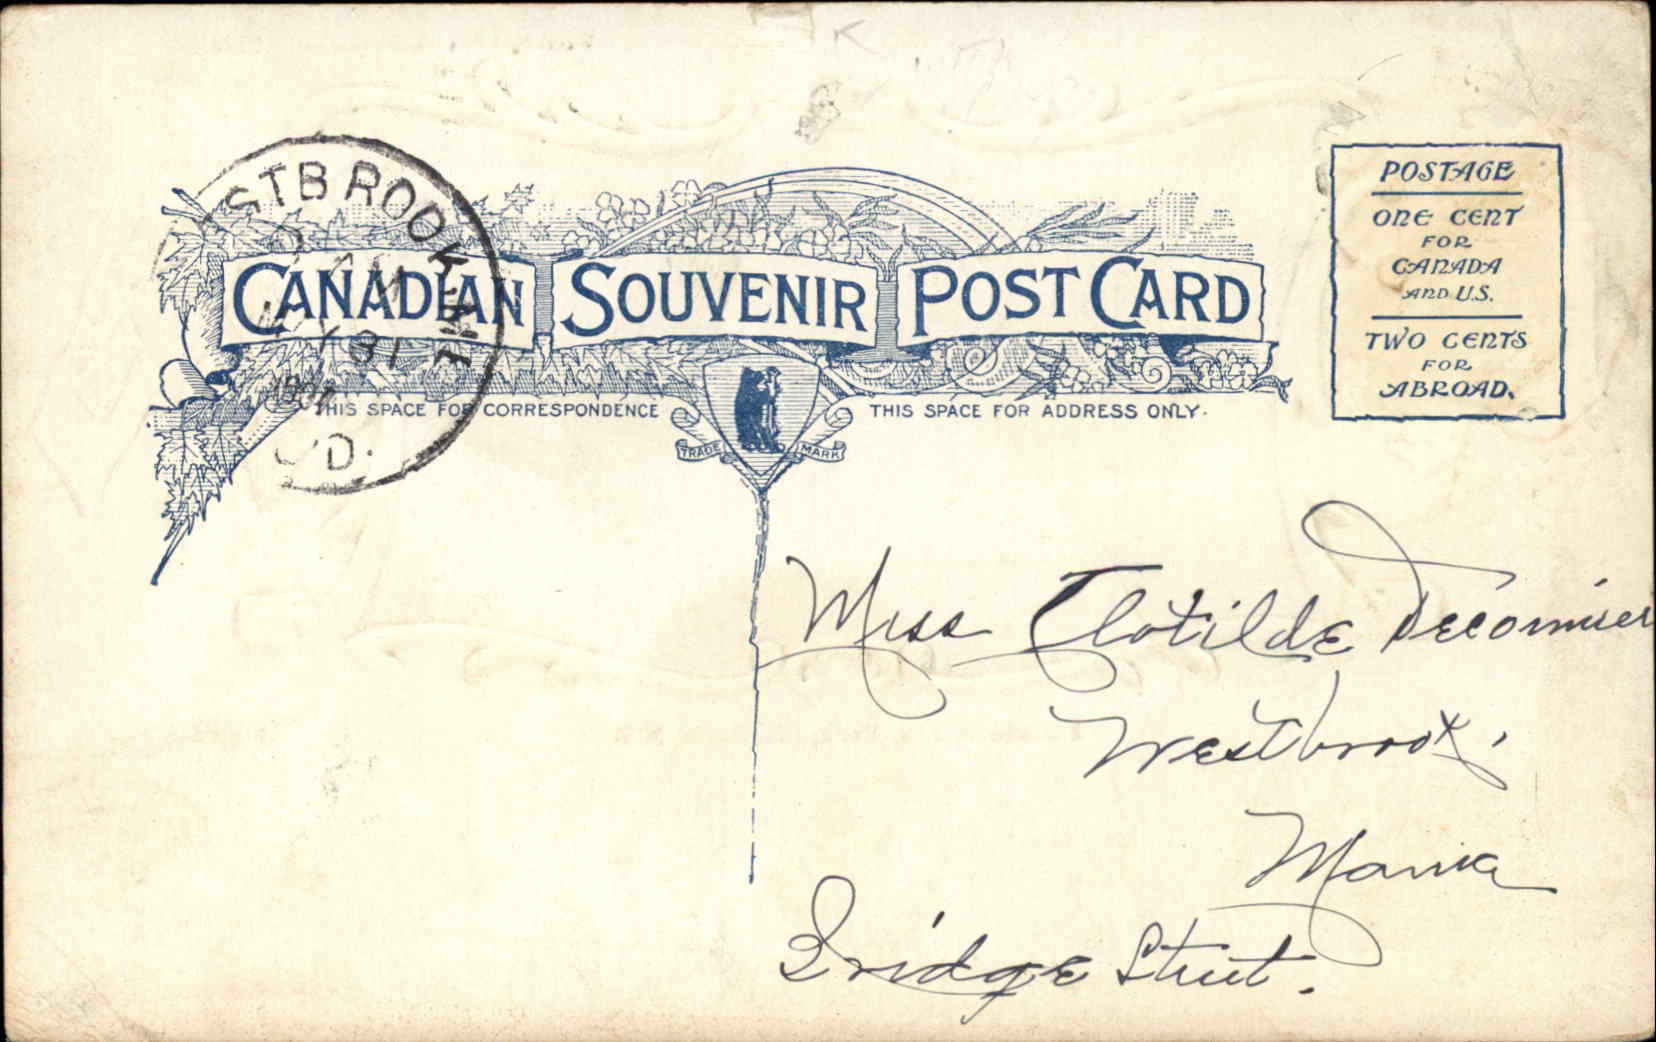 WESTBROOK ME
AM
MAY 31
REC'D.
CANADIAN SOUVENIR POST CARD
THIS SPACE FOR CORRESPONDENCE
THIS SPACE FOR ADDRESS ONLY.
TRADE MARK
POSTAGE
ONE CENT
FOR
CANADA
AND U.S.
TWO CENTS
FOR
ABROAD.
Miss Clotilde
Westbrook,
Maine
Bridge Street.